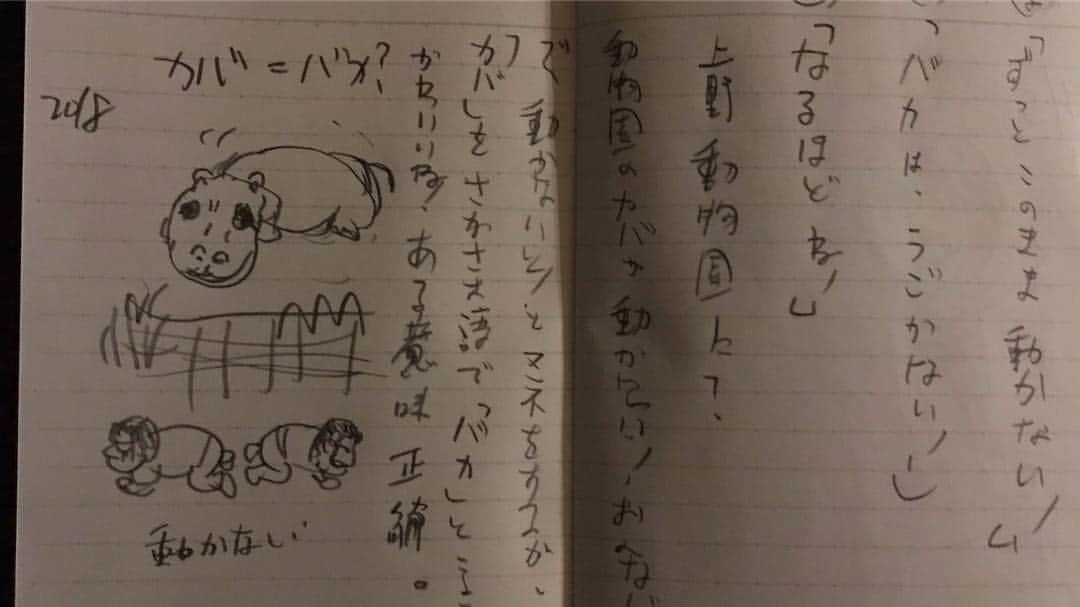 「ずっとこのまま動かない!」
「バカは、うごかない!」
「なるほどね!」
上野動物園にて、
動物園のカバが動かない!、おな
で動かない!とマネをするが、
「カバ」をさかさ語で「バカ」と言
かわいいな、ある意味正解。
カバ=バカ?
2018
動かない